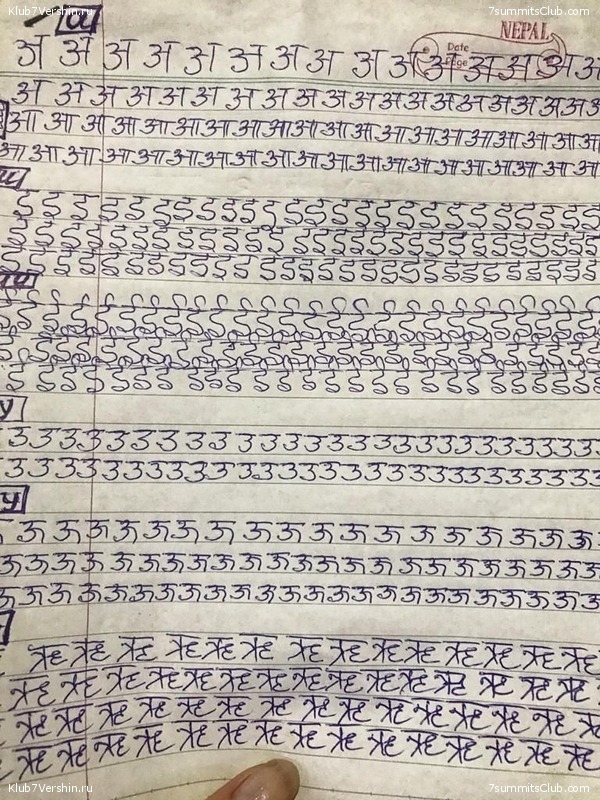 Klub7Vershin.ru 7summitsClub.com
a NEPAL
Date
Page
अ अ अ अ अ अ अ अ अ अ अ अ अ अ अ
अ अ अ अ अ अ अ अ अ अ अ अ अ अ अ अ अ अ अ अ
आ आ आ आ आ आ आ आ आ आ आ आ आ आ आ आ आ आ आ आ
आ आ आ आ आ आ आ आ आ आ आ आ आ आ आ आ आ आ आ आ
и
इ इ इ इ इ इ इ इ इ इ इ इ इ इ इ इ इ इ इ इ इ इ इ इ इ
इ इ इ इ इ इ इ इ इ इ इ इ इ इ इ इ इ इ इ इ इ इ इ इ इ
इ इ इ इ इ इ इ इ इ इ इ इ इ इ इ इ इ इ इ इ इ इ इ इ इ
ई ई ई ई ई ई ई ई ई ई ई ई ई ई ई ई ई ई ई ई ई ई ई ई
ई ई ई ई ई ई ई ई ई ई ई ई ई ई ई ई ई ई ई ई ई ई ई ई
ई ई ई ई ई ई ई ई ई ई ई ई ई ई ई ई ई ई ई ई ई ई ई ई
у
उ उ उ उ उ उ उ उ उ उ उ उ उ उ उ उ उ उ उ उ उ उ उ उ उ
उ उ उ उ उ उ उ उ उ उ उ उ उ उ उ उ उ उ उ उ उ उ उ उ उ
у
ऊ ऊ ऊ ऊ ऊ ऊ ऊ ऊ ऊ ऊ ऊ ऊ ऊ ऊ ऊ ऊ ऊ ऊ ऊ
ऊ ऊ ऊ ऊ ऊ ऊ ऊ ऊ ऊ ऊ ऊ ऊ ऊ ऊ ऊ ऊ ऊ ऊ ऊ ऊ ऊ ऊ ऊ
ऊ ऊ ऊ ऊ ऊ ऊ ऊ ऊ ऊ ऊ ऊ ऊ ऊ ऊ ऊ ऊ ऊ ऊ ऊ ऊ ऊ ऊ
ऋ ऋ ऋ ऋ ऋ ऋ ऋ ऋ ऋ ऋ ऋ ऋ ऋ ऋ
ऋ ऋ ऋ ऋ ऋ ऋ ऋ ऋ ऋ ऋ ऋ ऋ ऋ ऋ ऋ
ऋ ऋ ऋ ऋ ऋ ऋ ऋ ऋ ऋ ऋ ऋ ऋ ऋ ऋ ऋ
ऋ ऋ ऋ ऋ ऋ ऋ ऋ ऋ ऋ ऋ ऋ ऋ ऋ ऋ ऋ
Klub7Vershin.ru 7summitsClub.com